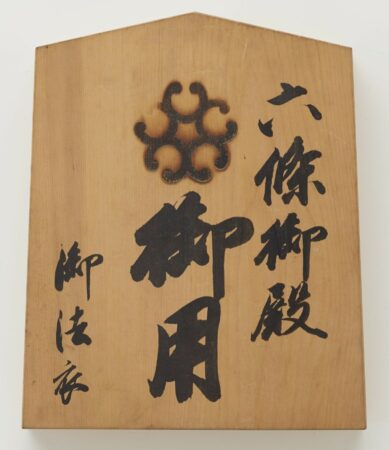 六條御殿
御用
御法衣